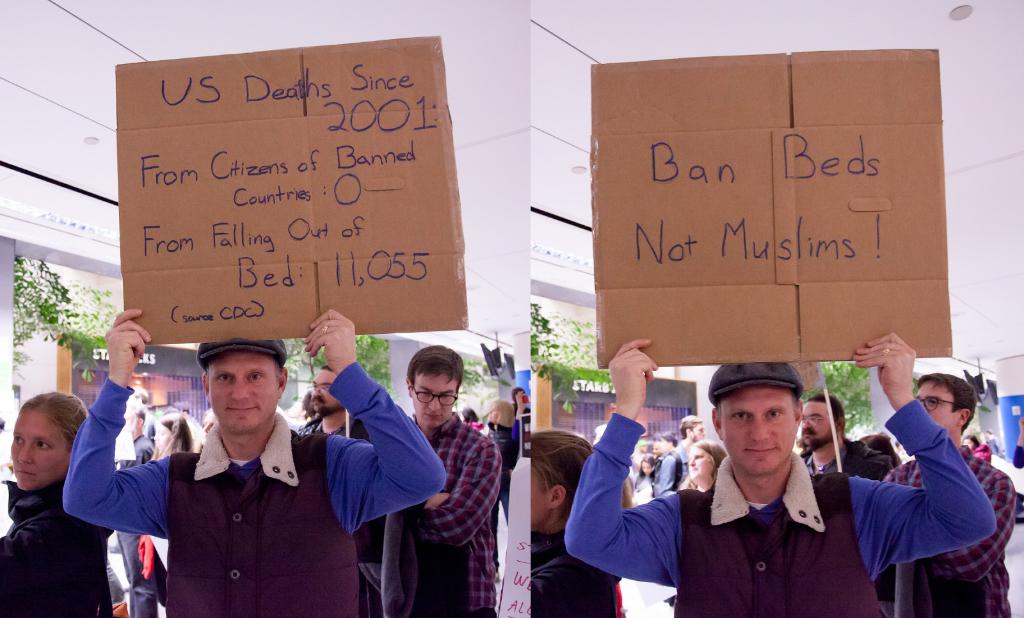 US Deaths Since
2001:
From Citizens of Banned
Countries: 0
From Falling Out of
Bed: 11,055
(source CDC)
Ban Beds
Not Muslims!